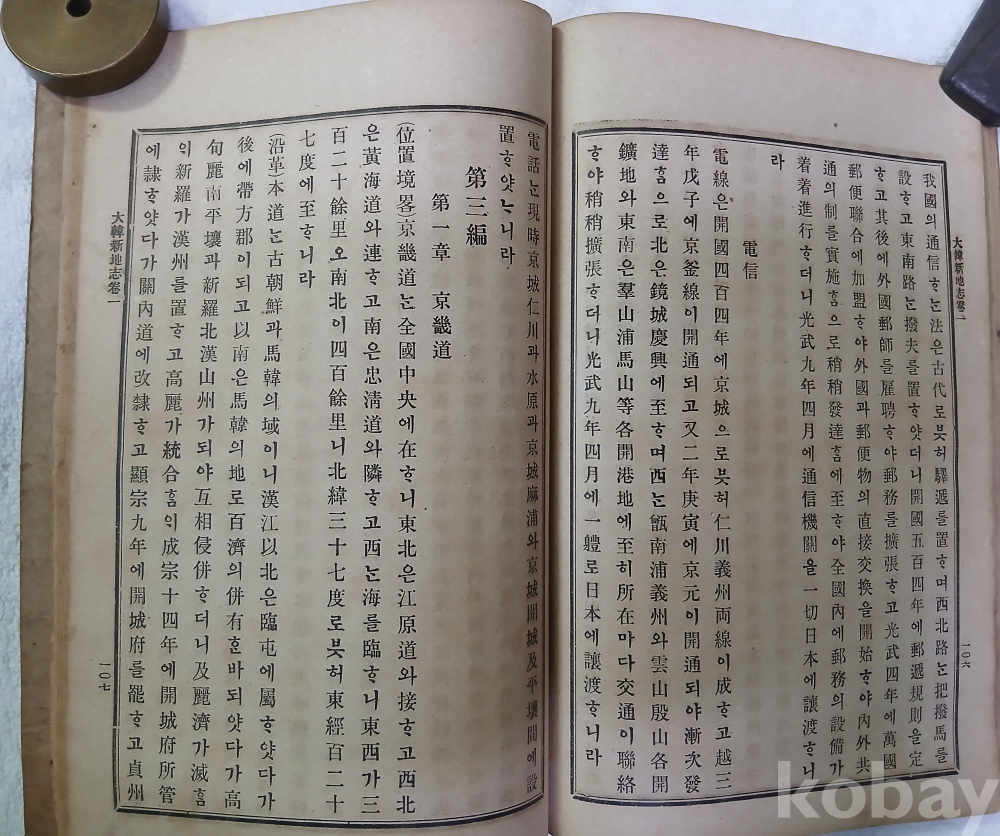 大韓新地志卷一
一〇六
我國의通信ᄒᆞᄂᆞᆫ法은古代로붓허驛遞를置ᄒᆞ며西北路ᄂᆞᆫ把撥馬를
設ᄒᆞ고東南路ᄂᆞᆫ撥夫를置ᄒᆞ얏더니開國五百四年에郵遞規則을定
ᄒᆞ고其後에外國郵師를雇聘ᄒᆞ야郵務를擴張ᄒᆞ고光武四年에萬國
郵便聯合에加盟ᄒᆞ야外國과郵便物의直接交換을開始ᄒᆞ야內外共
通의制를實施ᄒᆞᆷ으로稍稍發達ᄒᆞᆷ에至ᄒᆞ야全國內에郵務의設備가
着着進行ᄒᆞ더니光武九年四月에通信機關을一切日本에讓渡ᄒᆞ니
라
電信
電線은開國四百四年에京城으로붓허仁川義州両線이成ᄒᆞ고越三
年戊子에京釜線이開通되고又二年庚寅에京元이開通되야漸次發
達ᄒᆞᆷ으로北은鏡城慶興에至ᄒᆞ며西ᄂᆞᆫ甑南浦義州와雲山殷山各開
鑛地와東南은羣山浦馬山等各開港地에至히所在마다交通이聯絡
ᄒᆞ야稍稍擴張ᄒᆞ다니光武九年四月에一軆로日本에讓渡ᄒᆞ니라
電話ᄂᆞᆫ現時京城仁川과水原과京城麻浦와京城開城及平壤間에設
置ᄒᆞ얏ᄂᆞ니라
第三編
第一章 京畿道
(位置境畧)京畿道ᄂᆞᆫ全國中央에在ᄒᆞ니東北은江原道와接ᄒᆞ고西北
은黃海道와連ᄒᆞ고南은忠淸道와隣ᄒᆞ고西ᄂᆞᆫ海를臨ᄒᆞ니東西가三
百二十餘里오南北이四百餘里니北緯三十七度로붓허東經百二十
七度에至ᄒᆞ니라
(沿革)本道ᄂᆞᆫ古朝鮮과馬韓의域이니漢江以北은臨屯에屬ᄒᆞ얏다가
後에帶方郡이되고以南은馬韓의地로百濟의併有ᄒᆞᆫ바되얏다가高
旬麗南平壤과新羅北漢山州가되야互相侵併ᄒᆞ더니及麗濟가滅ᄒᆞᆷ
의新羅가漢州를置ᄒᆞ고高麗가統合ᄒᆞᆷ의成宗十四年에開城府所管
에隷ᄒᆞ얏다가關內道에改隷ᄒᆞ고顯宗九年에開城府를罷ᄒᆞ고貞州
大韓新地志卷一
一〇七
kobay